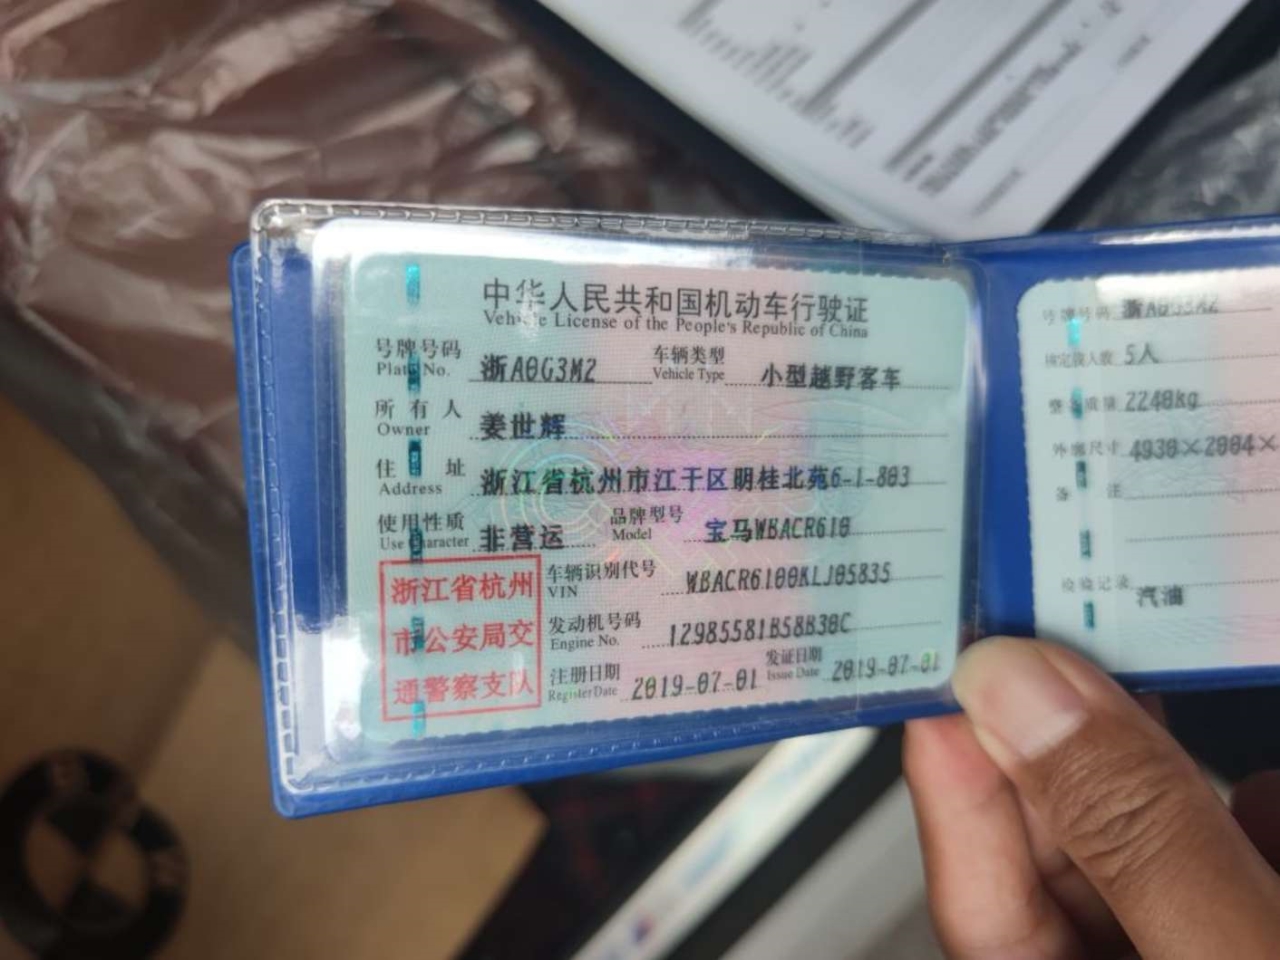 中华人民共和国机动车行驶证
Vehicle License of the People's Republic of China
号牌号码 浙A0G3M2 车辆类型 小型越野客车
Plate No. Vehicle Type
所有人 姜世辉
Owner
住址 浙江省杭州市江干区明桂北苑6-1-803
Address
使用性质 非营运 品牌型号 宝马WBACR610
Use Character Model
浙江省杭州
市公安局交
通警察支队
车辆识别代号 WBACR6100KLJ05835
VIN
发动机号码 12985581B58B30C
Engine No.
注册日期 2019-07-01 发证日期 2019-07-01
Register Date Issue Date
号牌号码 浙A0G3M2
核定载人数 5人
整备质量 2240kg
外廓尺寸 4930×2004×
备注
检验记录
汽油